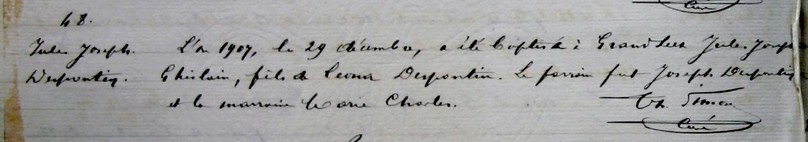 48.
Jules Joseph
Despontin.
L'an 1907, le 29 décembre, a été baptisé à Grand Leez Jules Joseph
Ghislain, fils de Leona Despontin. Le parrain fut Joseph Despontin
et la marraine Marie Charles.
Th. Simon
Curé
Curé